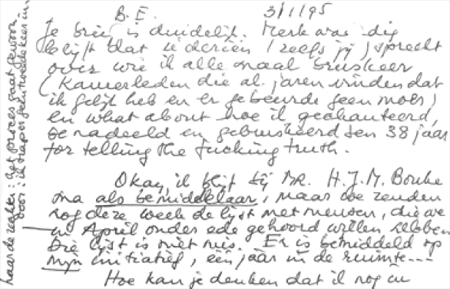 B.E. 3/1/95
Je brief is duidelijk. Merkwaardig
blijft dat iedereen (zelfs jij) spreekt
over wie ik allemaal bruskeer
(Kamerleden die al jaren vinden dat
ik gelijk heb en er gebeurde geen moer)
en what about hoe ik gechanteerd,
benadeeld en gebruskeerd ben 38 jaar
for telling the fucking truth.
Okay, ik blijf bij MR. H.J.M. Bouke
ma als bemiddelaar, maar we zenden
nog deze week de lijst met mensen, die we
in April onder ede gehoord willen hebben
Die lijst is niet mis. Er is bemiddeld op
mijn initiatief, één jaar in de ruimte---
Hoe kan je denken dat ik nog in
haarde water: het proces gaat gewoon
door: ik stap er geen tweede keer in